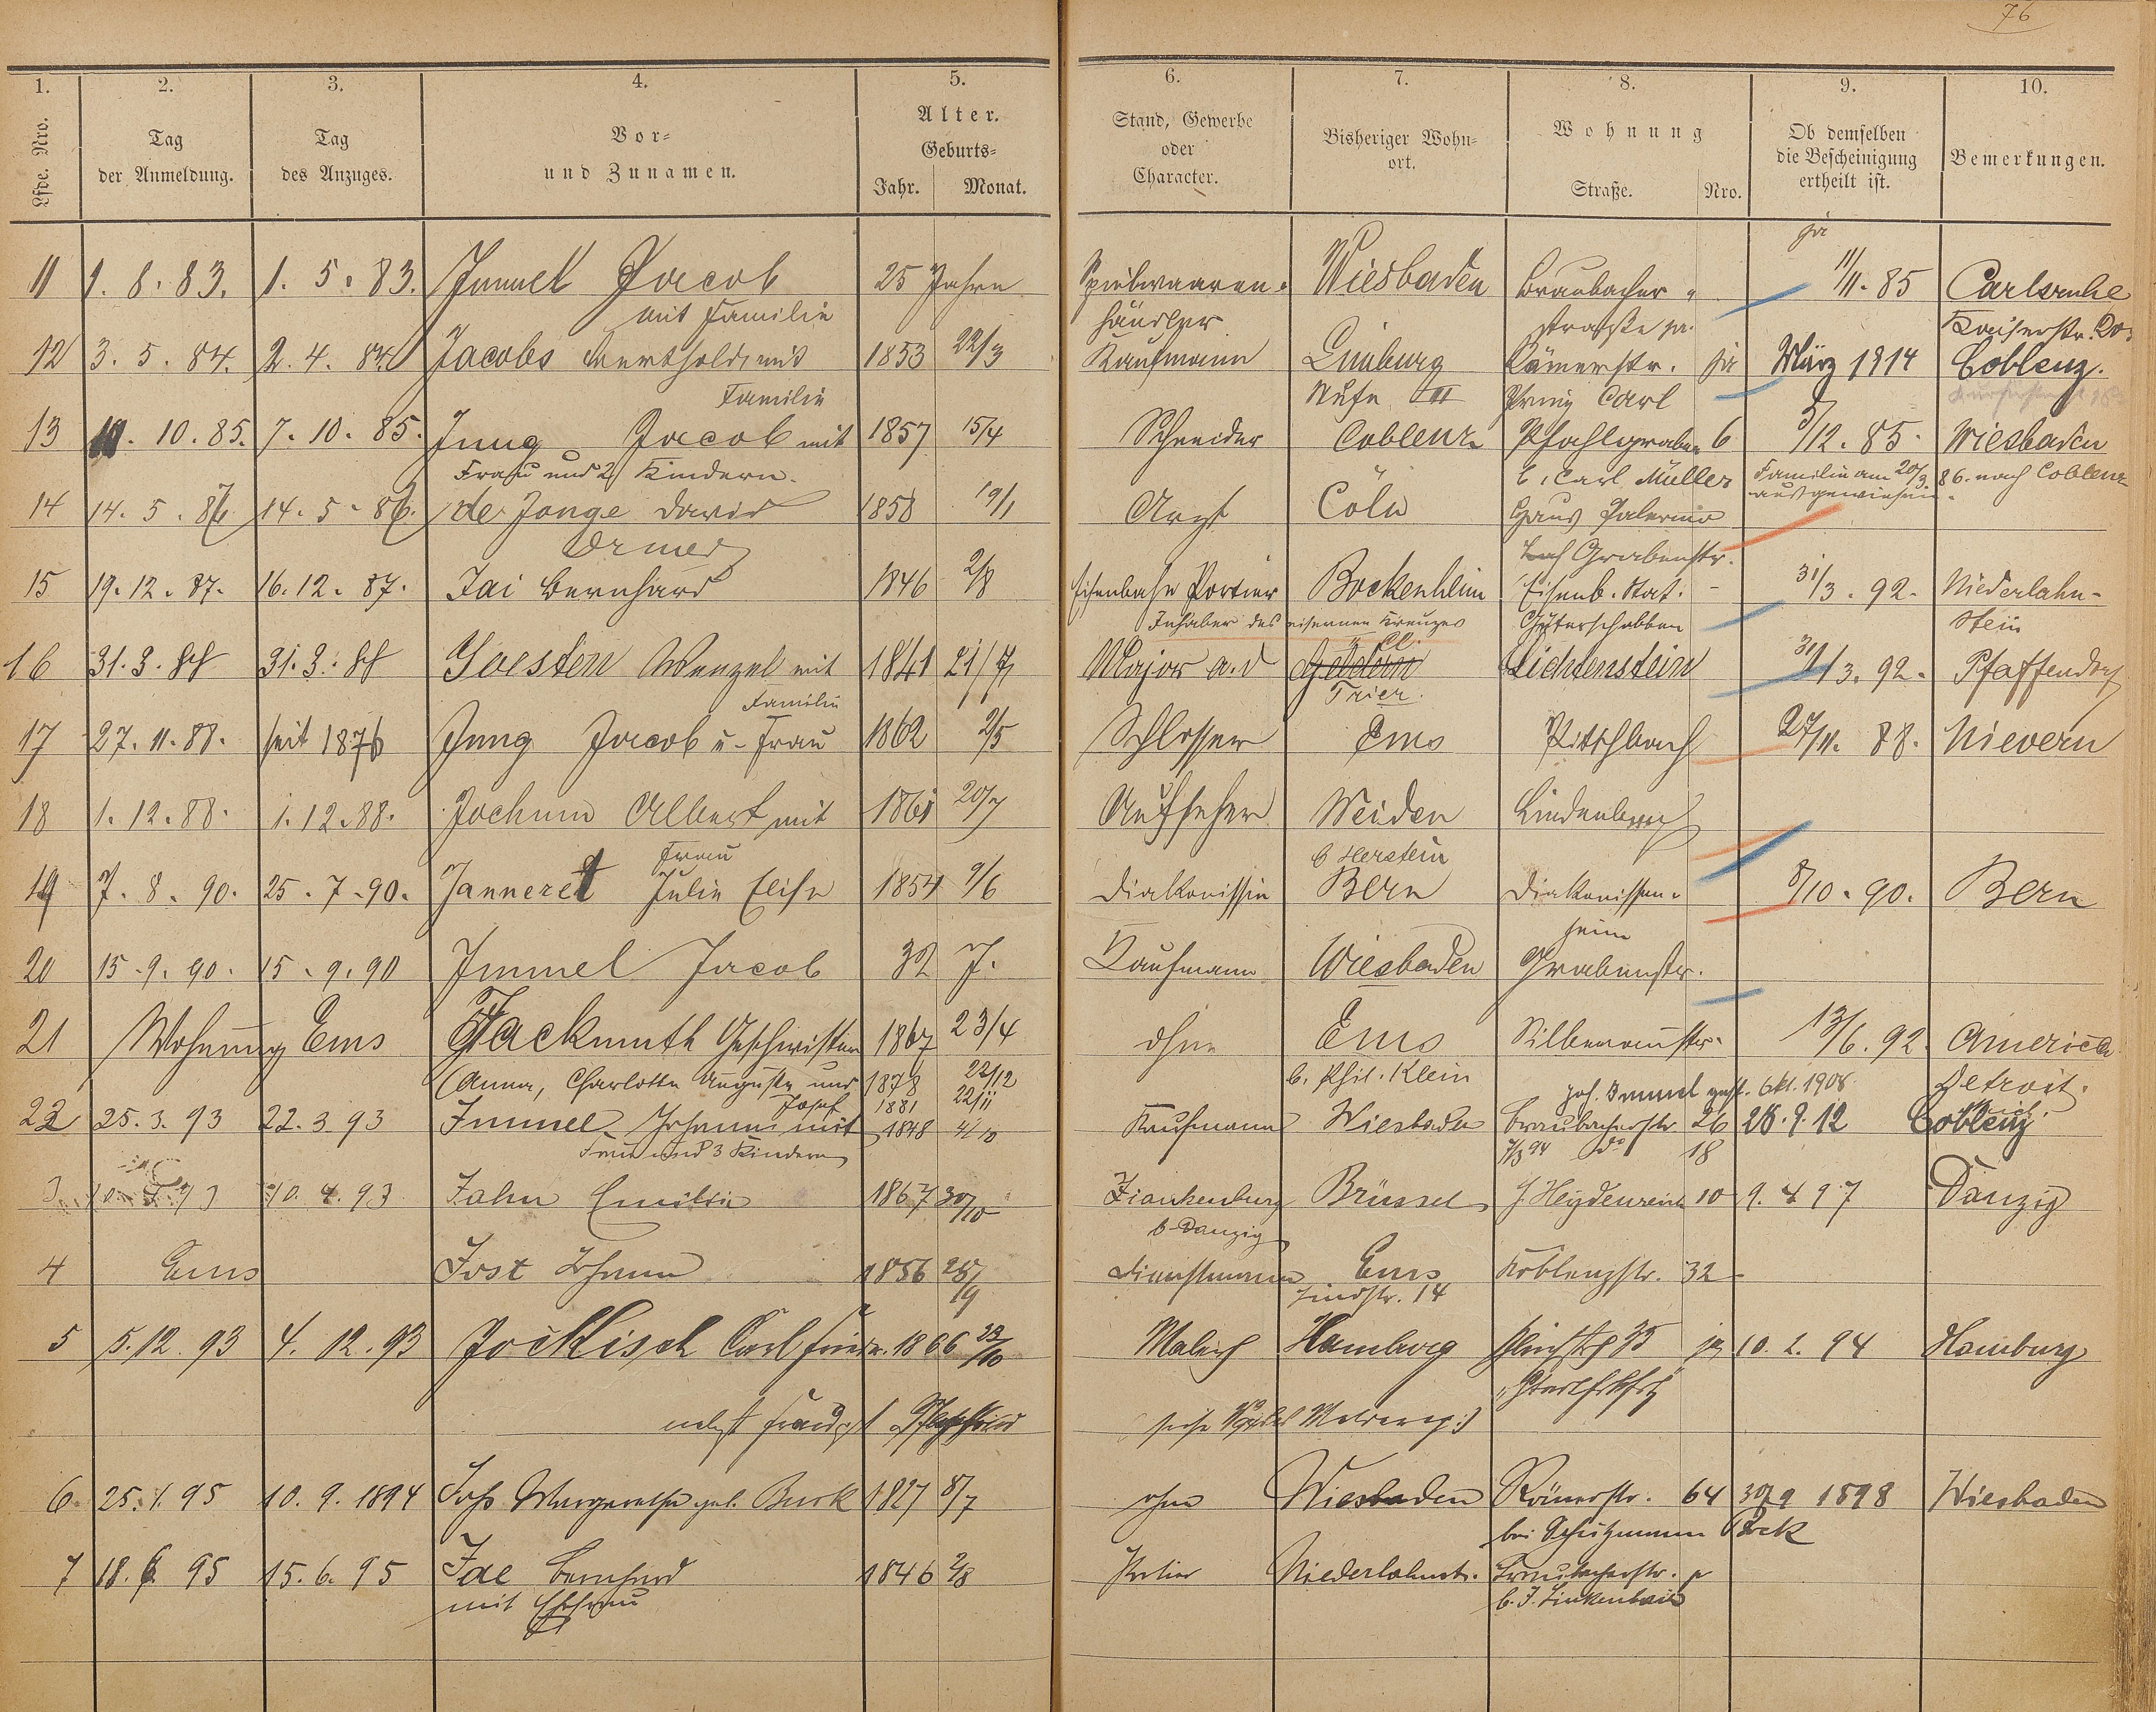 76
1. 2. 3. 4. 5. 6. 7. 8. 9. 10.
Lfde. Nro. Tag der Anmeldung. Tag des Anzuges. Vor- und Zunamen. Alter. Geburts- Jahr. Monat. Stand, Gewerbe oder Character. Bisheriger Wohnort. Wohnung Straße. Nro. Ob demselben die Bescheinigung ertheilt ist. Bemerkungen.
ja
11 1. 8. 83. 1. 5. 83. Immel Jacob 25 Jahre Spielwaaren- Wiesbaden Braubacher- 11/11. 85 Carlsruhe
mit Familie händler straße ja. Kaiserstr.
12 3. 5. 84. 2. 4. 84. Jacobs Berthold mit 1853 22/3 Kaufmann Limburg Römerstr. ja März 1914 Coblenz.
Familie III Prinz Carl
13 10. 85. 7. 10. 85. Jung Jacob mit 1857 15/4 Schneider Coblenz Pfahlgraben 6 5/12. 85. Wiesbaden
Frau und 2 Kindern. b. Carl Müller Familie am 20/3. 86. nach Coblenz
ausgewiesen.
14 14. 5. 86. 14. 5. 86. de Jonge David 1858 19/1 Arzt Cöln Haus Palermo
Grabenstr.
15 19. 12. 87. 16. 12. 87. Jai Bernhard 1846 2/8 Eisenbahn Portier Bockenheim Eisenb. Stat. - 31/3. 92. Niederlahn-
Inhaber des eisernen Kreuzes II Cl. Güterschuppen stein
16 31. 3. 88 31. 3. 88 Joesten Wenzel mit 1841 21/7 Major a. d Geldern Lichtenstein 31/3. 92. Pfaffendorf
Familie Trier.
17 27. 11. 88. seit 1876 Jung Jacob u. Frau 1862 2/5 Schlosser Ems Pitschbach 27/11. 88. Nievern
18 1. 12. 88. 1. 12. 88. Jochum Albert mit 1861 20/7 Aufseher Weiden Lindenbach
Frau b Herstein
19 7. 8. 90. 25. 7. 90. Janneret Julie Elise 1854 9/6 Diakonissin Bern Diakonissen- 8/10. 90. Bern
heim
20 15. 9. 90. 15. 9. 90 Immel Jacob 32 J. Kaufmann Wiesbaden Grabenstr.
21 Wohnung Ems Jackmuth Geschwister 1867 23/4 ohne Ems Silberaustr. 13/6. 92. America
(Anna, Charlotte Auguste und 1878 22/12 b. Phil. Klein Detroit.
Josef 1881 22/11 Joh. Immel gest. Okt. 1908.
22 25. 3. 93 22. 3. 93 Immel Johann mit 1848 4/10 Kaufmann Wiesbaden Braubacherstr. 26 28. 9. 12 Coblenz
Frau und 3 Kindern 94 do 18
3 10. 4. 93 10. 4. 93 Jahn Emilie 1867 30/10 Ziankenburg Brüssel J. Heydenreich 10 9. 4 97 Danzig
b. Danzig
4 Ems Jost Johann 1856 25/9 Dienstmann Ems Koblenzstr. 32
Lindstr. 14
5 5. 12. 93 4. 12. 93 Jocklisch Carl Friedr. 1866 23/10 Hamburg 35 ja 10. 2. 94 Hamburg
nebst
6 25. 1. 95 10. 9. 1894 Margarethe geb. Burk 1827 8/7 ohne Wiesbaden Römerstr. 64 30/9 1898 Wiesbaden
bei Schutzmann
7 18. 6. 95 15. 6. 95 Jae Bernhard 1846 2/8 Portier Niederlahnst. Braubacherstr.
mit Ehefrau b. J. Linkenbach